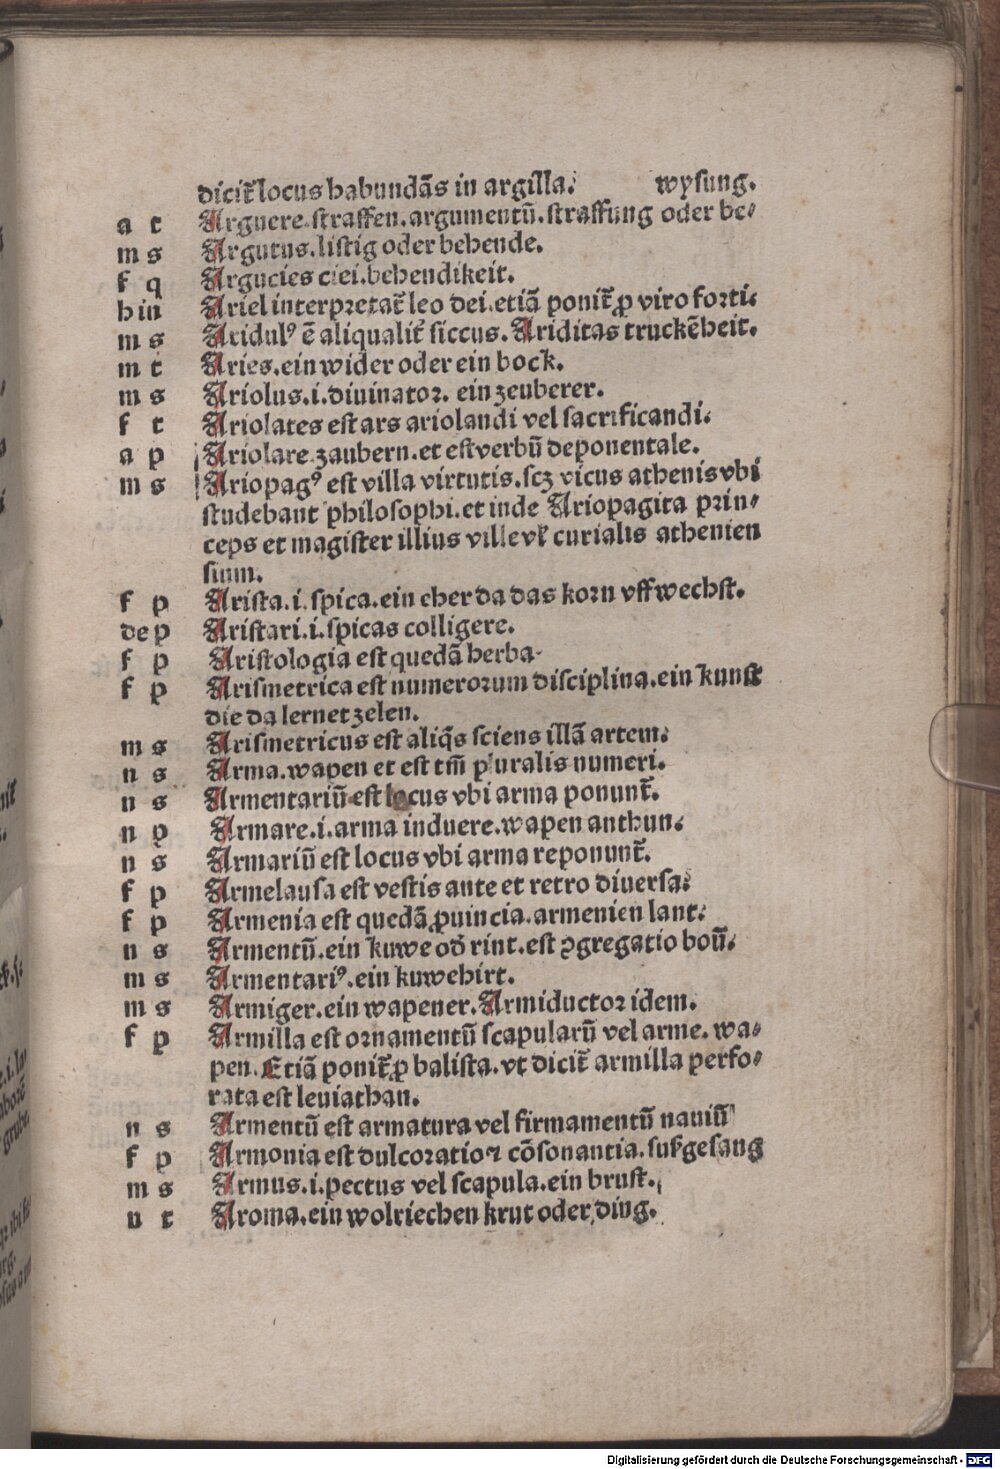 dicit̄ locus habundās in argilla. wysung.
a t Arguere.straffen.argumentū.straffung oder be⸗
m s Argutus.listig oder behende.
f q Argucies ciei.behendikeit.
h in Ariel interpretat̄ leo dei.etiā ponit̄ ꝓ viro forti.
m s Aridulꝰ ē aliqualit̄ siccus.Ariditas truckēheit.
m t Aries.ein wider oder ein bock.
m s Ariolus.i.diuinator. ein zeuberer.
f t Ariolates est ars ariolandi vel sacrificandi.
a p Ariolare.zaubern.et est verbū deponentale.
m s Ariopagꝰ est villa virtutis.scꝫ vicus athenis vbi
studebant philosophi.et inde Ariopagita prin⸗
ceps et magister illius ville vł curialis athenien
sium.
f p Arista.i.spica.ein eher da das korn vff wechst.
de p Aristari.i.spicas colligere.
f p Aristologia est quedā herba.
f p Arismetrica est numerorum disciplina.ein kunst
die da lernet zelen.
m s Arismetricus est aliq̄s sciens illā artem.
n s Arma.wapen et est tm̄ pluralis numeri.
n s Armentariū est locus vbi arma ponunt̄.
n p Armare.i.arma induere.wapen anthun.
n s Armariū est locus vbi arma reponunt̄.
f p Armelausa est vestis ante et retro diuersa.
f p Armenia est quedā ꝓuincia.armenien lant.
n s Armentū.ein kuwe od̄ rint.est ꝯgregatio boū.
m s Armentariꝰ.ein kuwehirt.
m s Armiger.ein wapener.Armiductor idem.
f p Armilla est ornamentū scapularū vel arme.wa⸗
pen.Etiā ponit̄ ꝓ balista.vt dicit̄ armilla perfo⸗
rata est leuiathan.
n s Armentū est armatura vel firmamentū nauiū
f p Armonia est dulcoratio ⁊ cōsonantia.sußgesang
m s Armus.i.pectus vel scapula.ein brust.
n t Aroma.ein wolriechen krut oder ding.
Digitalisierung gefördert durch die Deutsche Forschungsgemeinschaft - DFG